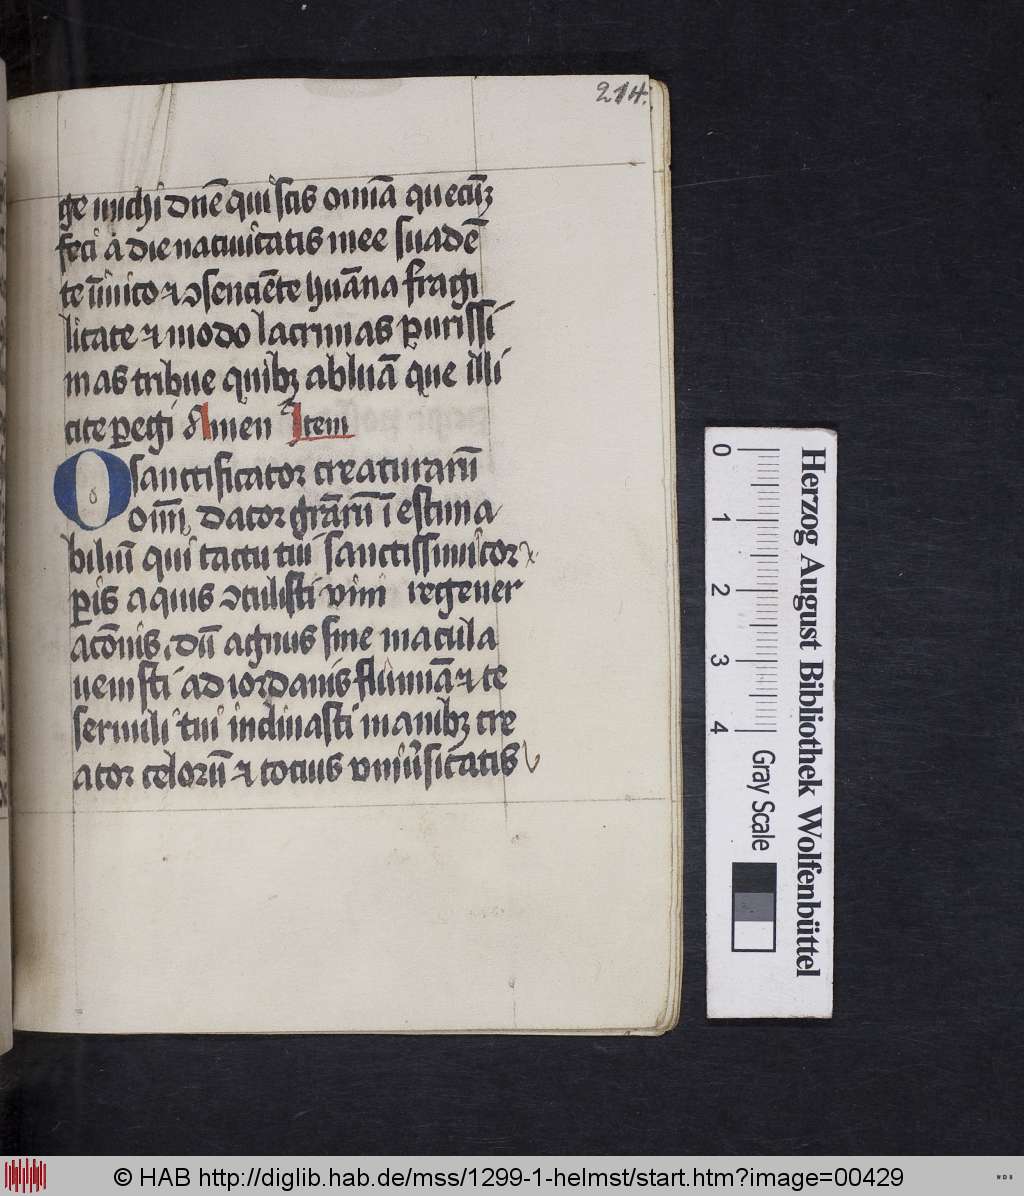 214.
ge michi dn̄e qui scis om̄ia quecūqꝫ
feci a die natiuitatis mee suadē
te inīico ⁊ ꝯsencīēte huāna fragi
litate ⁊ modo lacrimas ꝑurissi
mas tribue quibꝫ abluā que illi
cite ꝑegi Amen Item
O sanctificator creaturarū
om̄i, dator grārū īestima
biliū qui tactu tui sanctissimi cor
ꝑis aquis ꝯtulisti vim regener
acōnis, dū agnus sine macula
uenisti ad iordanis fluuiū ⁊ te
seruili tui inclinasti manibꝫ cre
ator celorū ⁊ tocius vniūsitatis
0 1 2 3 4
Gray Scale
Herzog August Bibliothek Wolfenbüttel
© HAB http://diglib.hab.de/mss/1299-1-helmst/start.htm?image=00429